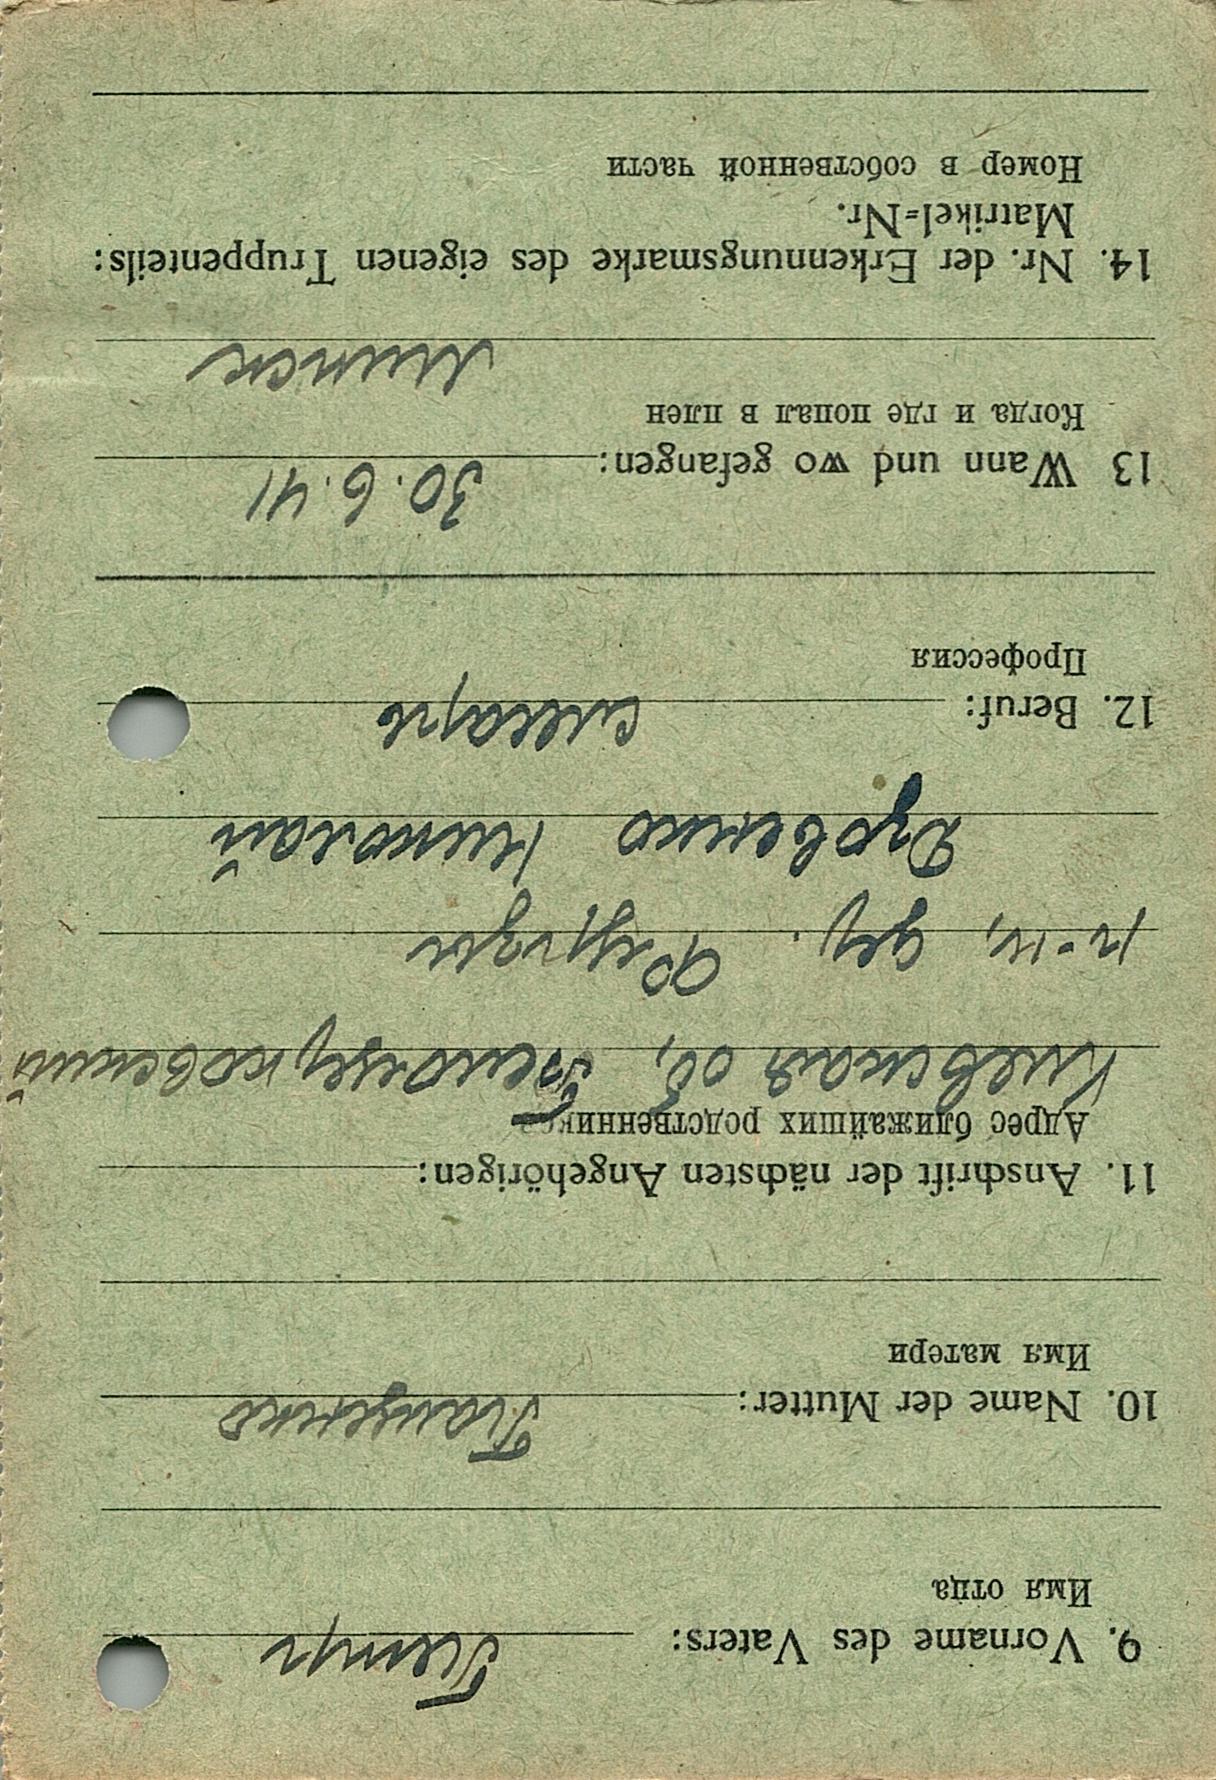 9. Vorname des Vaters: Петр
Имя отца
10. Name der Mutter: Панченко
Имя матери
11. Anschrift der nächsten Angehörigen:
Адрес ближайших родственнико
Киевская об, Белоцерковский
р-н, дер. Фурсы
Николай
12. Beruf: слесарь
Профессия
13 Wann und wo gefangen: 30.6.41
Когда и где попал в плен
Минск
14. Nr. der Erkennungsmarke des eigenen Truppenteils:
Matrikel=Nr.
Номер в собственной части